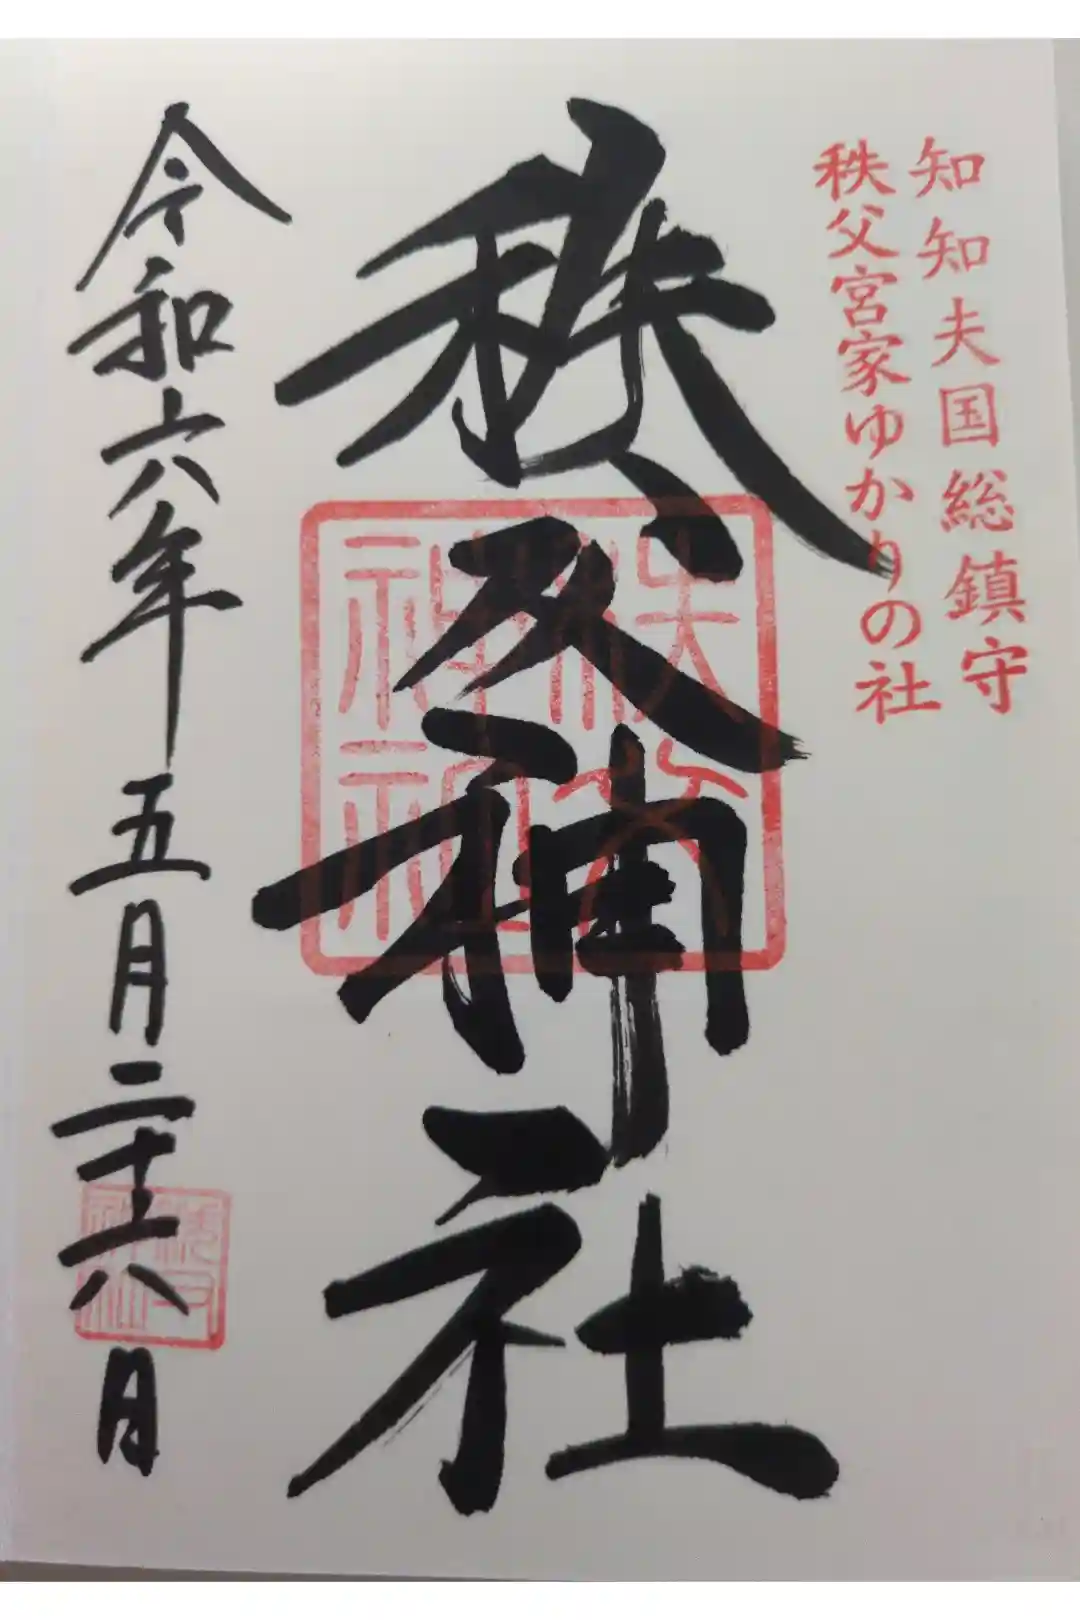 知知夫国総鎮守
秩父宮家ゆかりの社
秩父神社
秩父神社
令和六年五月二十六日